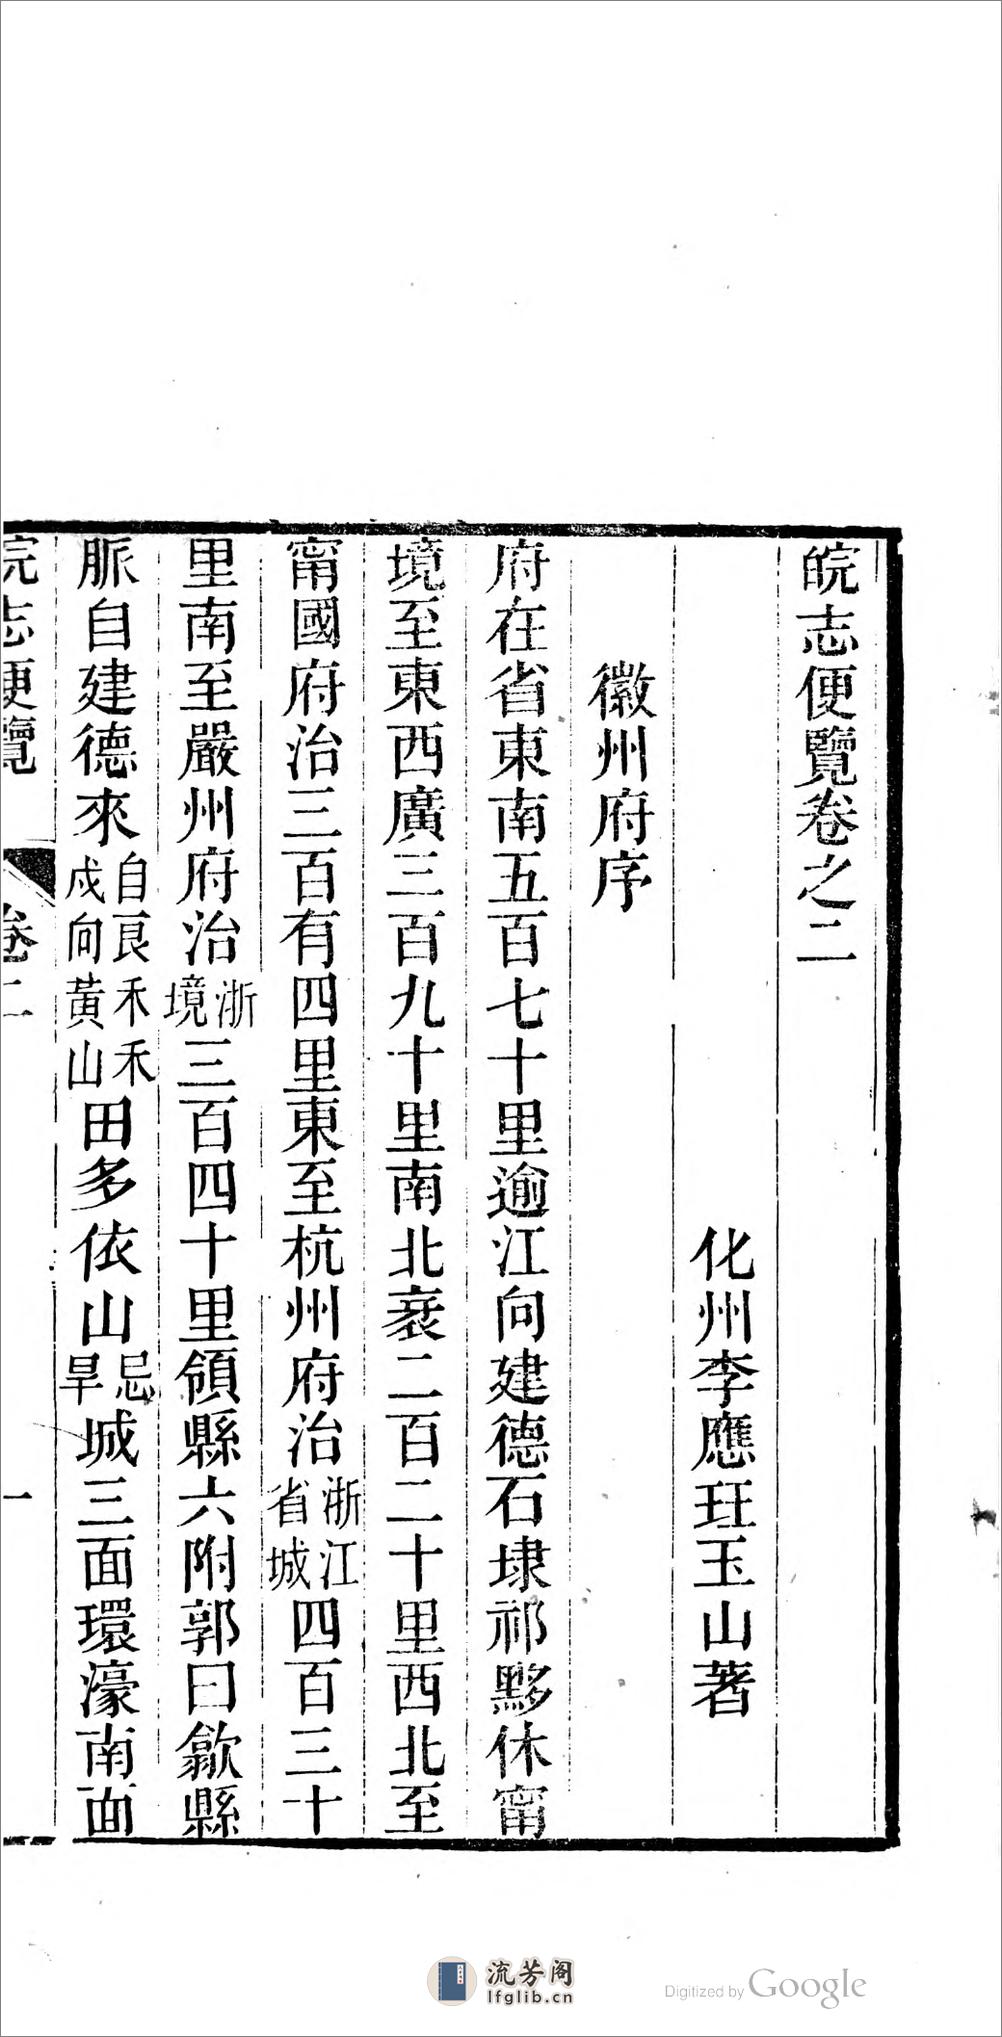 皖志便覽卷之二
化州李應珏玉山著
徽州府序
府在省東南五百七十里逾江向建德石埭祁黟休甯
境至東西廣三百九十里南北袤二百二十里西北至
甯國府治三百有四里東至杭州府治浙江省城四百三十
里南至嚴州府治浙境三百四十里領縣六附郭曰歙縣
脈自建德來自艮禾禾戍向黃山田多依山忌旱城三面環濠南面
皖志便覽 卷二 一
流芳阁
lfglib.cn
Digitized by Google